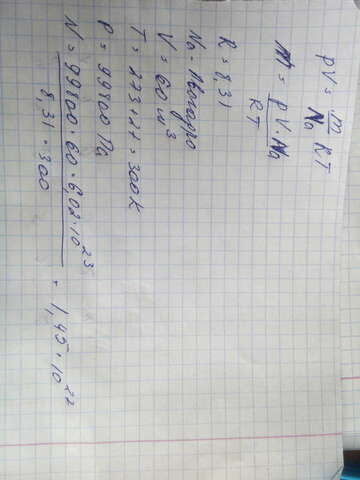 pV = m/Na RT
m = pV·Na / RT
R = 8,31
Na - Авагадро
V = 60 м³
T = 273+27 = 300K
P = 99800 Па
N = 99800·60·6,02·10²³ / 8,31·300 = 1,45·10²⁷